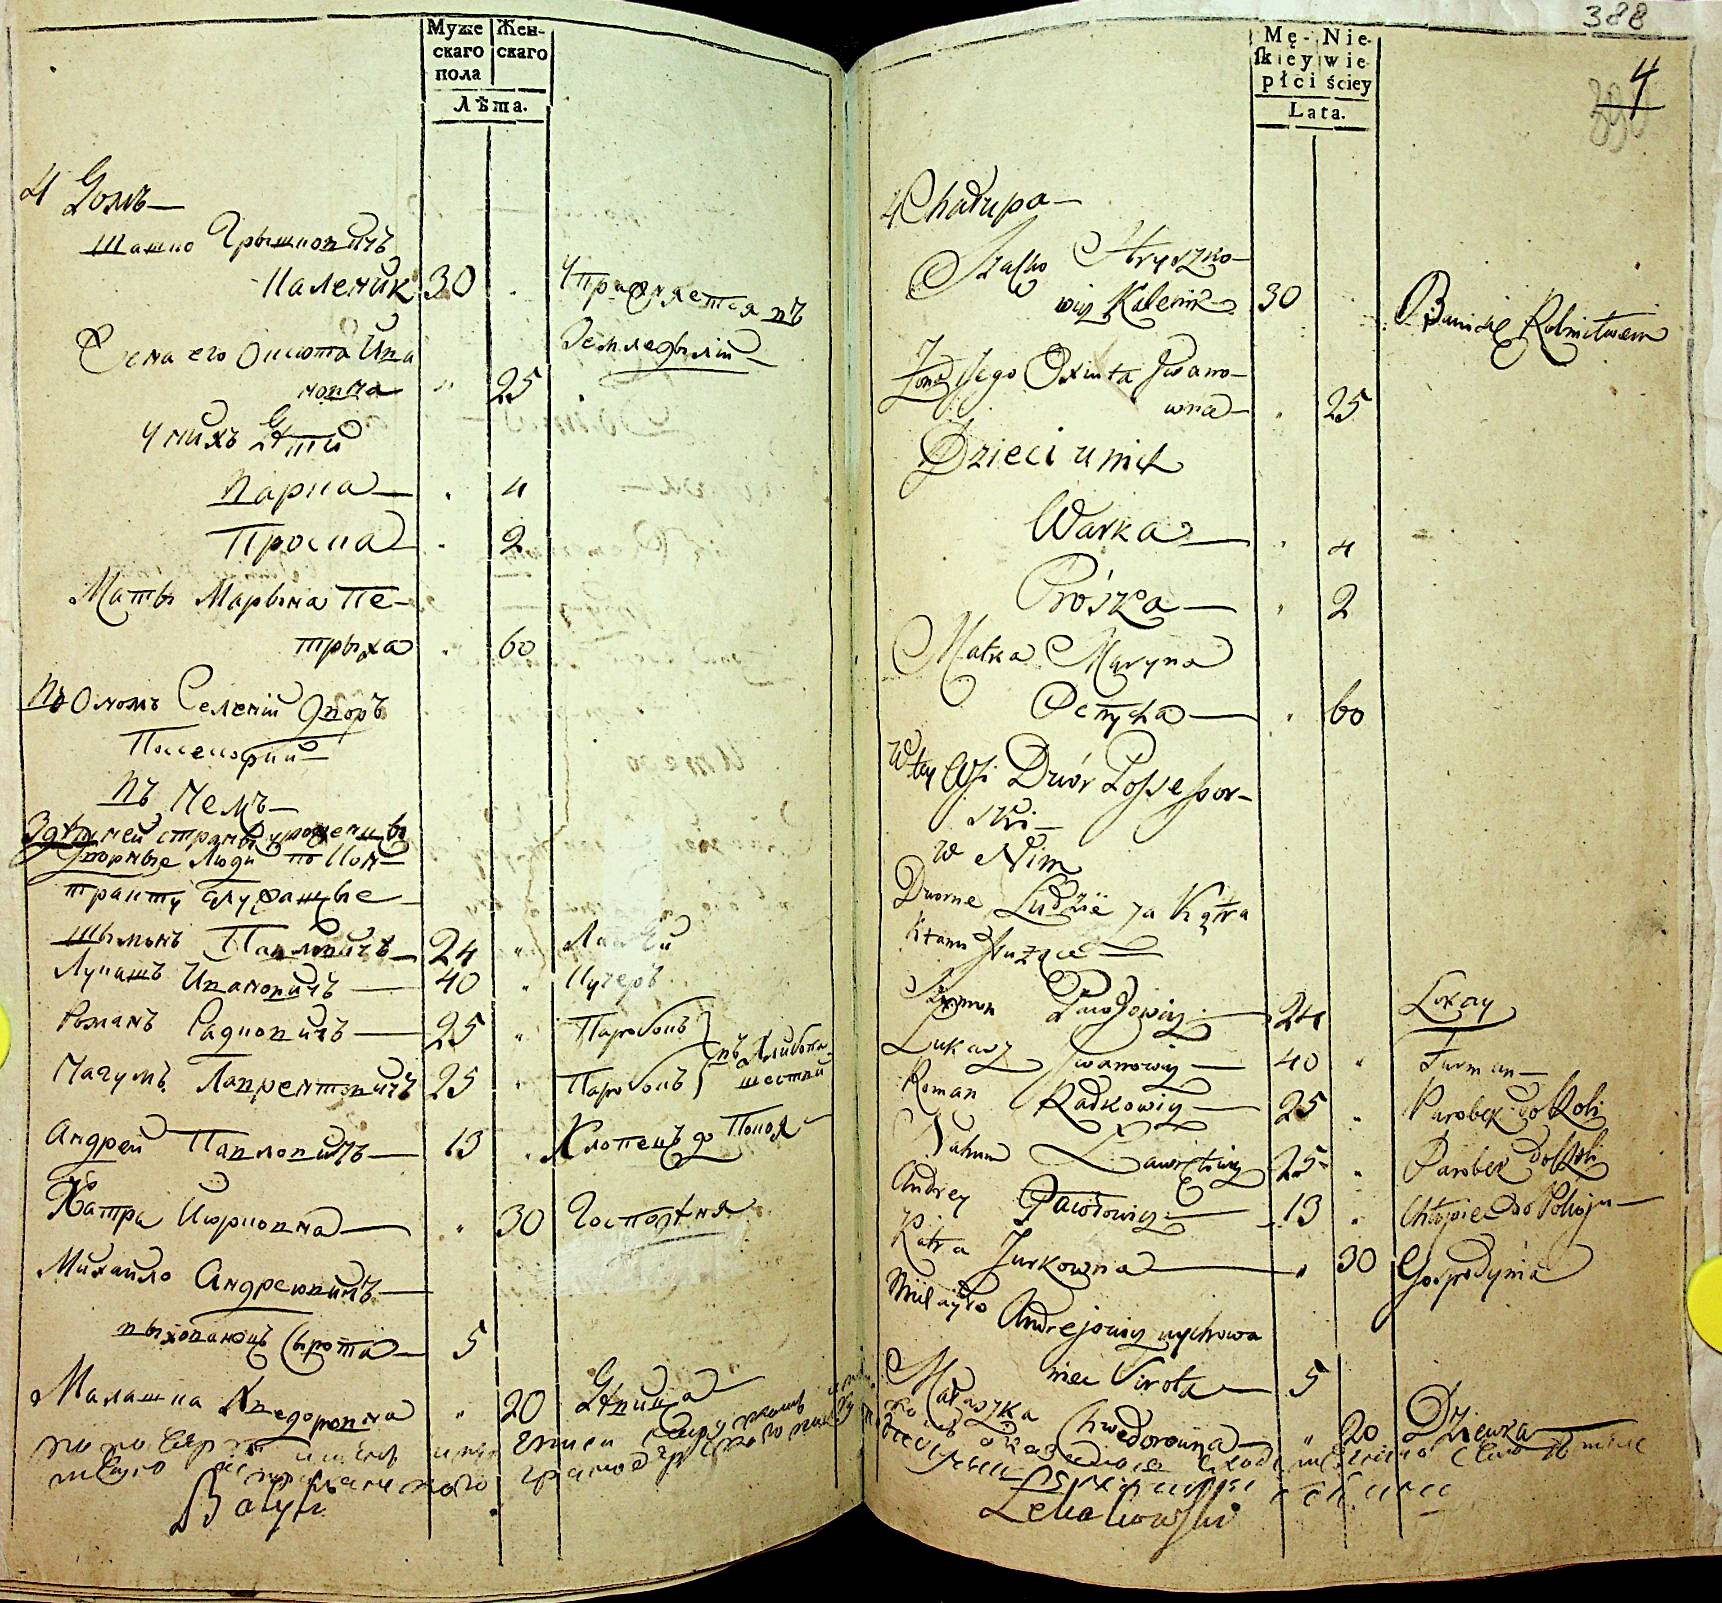 Муже
скаго
пола
Жен-
скаго
Лѣта.
4 Домъ
Шашко Грышковичъ
Каленик 30
Упражняется въ
Земледѣліи
Жена его Оксюта Ива
новна " 25
У нихъ Дѣти
Варка 4
Проска 2
Мать Марына Пе-
трыха 60
Въ Ономъ Селеніи Дворъ
Поссесорскій
въ Немъ
Дворные Люди по Кон-
тракту служащые
Шымонъ Павловичъ 24 " Лакей
Лукашъ Ивановичъ 40 " Кучеръ
Романъ Радковичъ 25 " Паробокъ
Нагумъ Лаврентовичъ 25 " Паробокъ
въ Хлибопа-
шестви
Андрей Павловичъ 13 Хлопецъ до Покоя
Катра Юрковна " 30 Господыня
Михайло Андреювичъ
выхованецъ Сырота 5
Малашка Хведоровна " 20 Дѣвица
388
4
Mę-
skiey
płci
Nie-
wie-
ściey
Lata.
4 Chałupa
Szaszko Hryszko-
wicz Kalenik 30
Bawi się Rolnictwem
Żona Jego Oxiuta Iwano-
wna 25
Dzieci u nich
Warka 4
Próska 2
Matka Maryna
Petrycha 60
W tey Wsi Dwór Possessor-
ski
w Nim
Dworne Ludzie za Kątra
ktami służące
Szymon Pawłowicz 24 Lokay
Łukasz Iwanowicz 40 " Furman
Roman Radkowicz 25 Parobek do Roli
Nahum Lawretowicz 25 Parobek do Roli
Andrey Pawłowicz 13 Chłopiec do Pokoju
Katra Jurkowna " 30 Gospodynia
Michayło Andrejowicz wychowa
niec Sirota 5
Małaszka Chwedorowna " 20 Dziewka